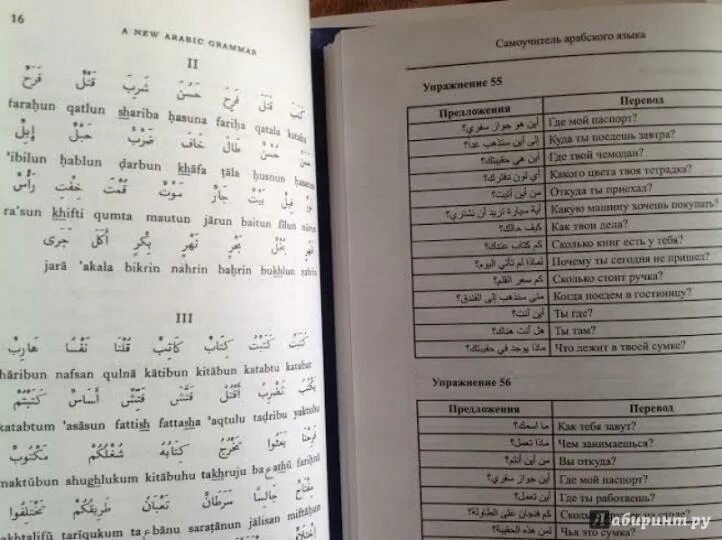 16
A NEW ARABIC GRAMMAR
II
كَتَبَ قَتَلَ فَرِحَ حَسُنَ شَرِبَ قَتْلٌ فَرَحٌ
faraḥun qatlun shariba ḥasuna fariḥa qatala kataba
حُسْنٌ طَالَ خَافَ ضَرْبٌ حَبْلٌ إِبِلٌ
'ibilun ḥablun ḍarbun khāfa ṭāla ḥusnun
فِيلٌ بَيْتٌ جَارٌ مَوْتٌ قُمْتَ خِفْتِ رَأْسٌ
ra'sun khifti qumta mautun jārun baitun fīlun
بُخْلٌ بَحْرٍ نَهْرٍ بِكْرٍ أَكَلَ جَرَى
jarā 'akala bikrin nahrin baḥrin bukhlun
III
كَتَبَتْ كَتَبْتُ كِتَابٌ كَاتِبٌ قُلْنَا نَفْسًا هَارِبٌ
hāribun nafsan qulnā kātibun kitābun katabtu katabat
يَكْتُبُ تَضْرِبُ أَقْتُلُ فَتَّشَ فَتِّشْ أَسَاسٌ كَتَبْتُمْ
katabtum 'asāsun fattish fattasha 'aqtulu taḍribu yaktubu
فَرِحْنَا بَعَثُوا تَخْرُجُ كِتَابُهُ شُغْلُكُمْ مَكْتُوبٌ
maktūbun shughlukum kitābuhu takhruju baʿathū fariḥnā
مِفْتَاحٌ جَالِسًا سَرَطَانٌ ثَعْبَانٌ طَرِيقُكُمْ تَخْتَلِفُوا
takhtalifū ṭarīqukum saraṭānun jālisan miftāḥun
Самоучитель арабского языка
Упражнение 55
Предложения Перевод
أين هو جواز سفري؟ Где мой паспорт?
إلى أين ستذهب غدا؟ Куда ты поедешь завтра?
أين هي حقيبتك؟ Где твой чемодан?
أي لون دفترك؟ Какого цвета твоя тетрадка?
من أين أتيت؟ Откуда ты приехал?
أية سيارة تريد أن تشتري؟ Какую машину хочешь покупать?
كيف حالك؟ Как твои дела?
كم كتاب عندك؟ Сколько книг есть у тебя?
لماذا لم تأتي اليوم؟ Почему ты сегодня не пришел?
كم سعر القلم؟ Сколько стоит ручка?
متى سنذهب إلى الفندق؟ Когда поедем в гостиницу?
أين أنت؟ Ты где?
هل أنت هناك؟ Ты там?
ماذا يوجد في حقيبتك؟ Что лежит в твоей сумке?
Упражнение 56
Предложения Перевод
ما اسمك؟ Как тебя зовут?
ماذا تعمل؟ Чем занимаешься?
من أين أنتم؟ Вы откуда?
أين جواز سفري؟ Где мой паспорт?
أين تعمل؟ Где ты работаешь?
كم فنجان على الطاولة؟ на столе?
لمن هذه الحقيبة؟ Чья это сумка?
Лабиринт.ру